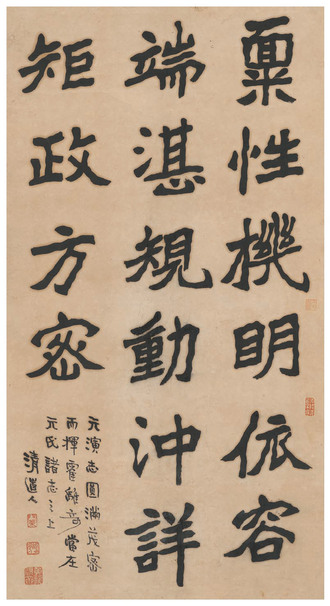 稟性機明依容
端湛規動沖詳
矩政方密
元演志圓滿茂密
而揮霍離奇當在
元氏諸志之上
清道人